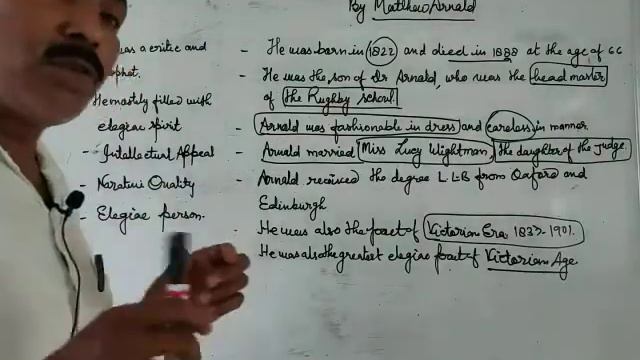 By Matthew Arnald
was a critic and
phet.
He mostly filled with
elegiac spirit
- Intellectual Appeal
- Narative Quality
- Elegiac person.
- He was born in 1822 and died in 1888 at the age of 66
- He was the son of Dr Arnald, who was the head master
of the Rughby school
- Arnald was fashionable in dress and careless in manner
- Arnald married Miss Lucy Wightman, the daughter of the Judge.
- Arnald received the degree L.L.B from Oxford and
Edinburgh
- He was also the poet of Victorian Era 1837-1901.
He was also the greatest elegiac poet of Victorian Age